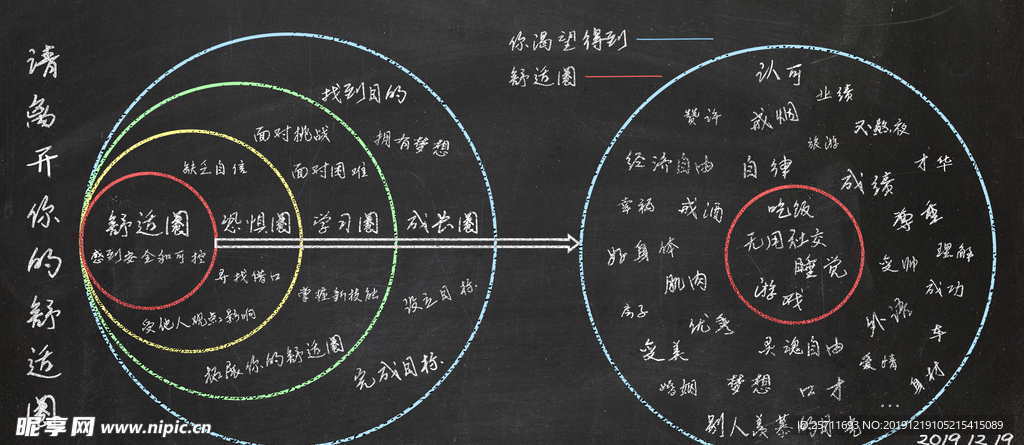 请离开你的舒适圈
找到目的
面对挑战
拥有梦想
缺乏自信
面对困难
舒适圈
恐惧圈
学习圈
成长圈
感到安全和可控
寻找借口
掌握新技能
设立目标.
受他人观点影响
拓展你的舒适圈
完成目标.
你渴望得到
舒适圈
认可
业绩
赞许
戒烟
旅游
不熬夜
经济自由
自律
才华
成绩
幸福
戒酒
吃饭
尊重
好身体
无用社交
变帅
理解
睡觉
肌肉
游戏
成功
房子
优秀
外语
车
变美
灵魂自由
爱情
婚姻
梦想
口才
身材
...
别人羡慕的目光
2019.12.19
昵享网 www.nipic.cn
ID:25711693 NO:20191219105215415089